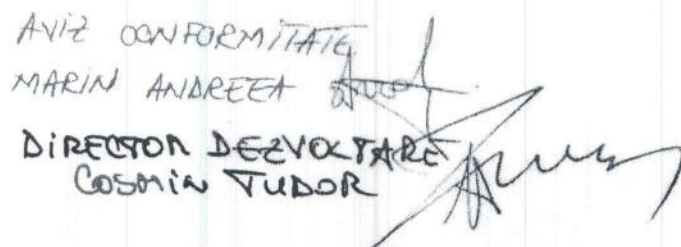 AVIZ CONFORMITATE
MARIN ANDREEA
DIRECTOR DEZVOLTARE
COSMIN TUDOR